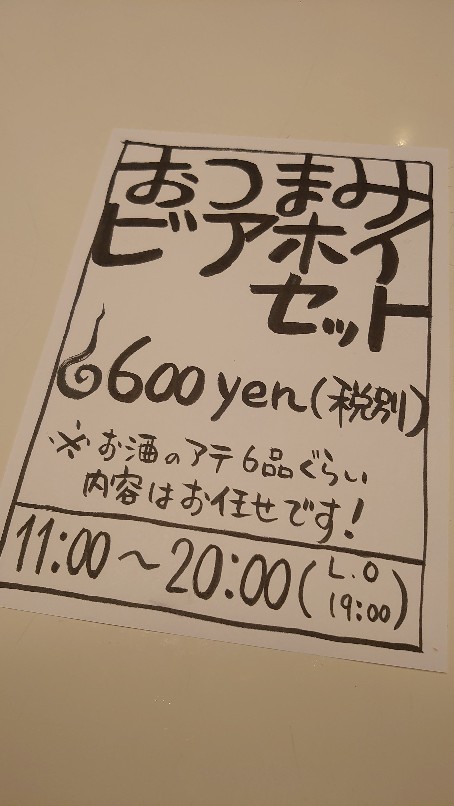 おつまみ
ビアホイ
セット
600 yen(税別)
※お酒のアテ6品ぐらい
内容はお任せです!
11:00〜20:00(L.O
19:00)